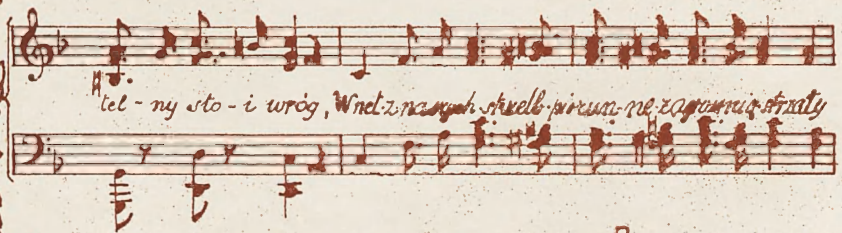 tel - ny sto - i wróg, Wnet z naszych strzelb piorun - ne zagrzmią strzały